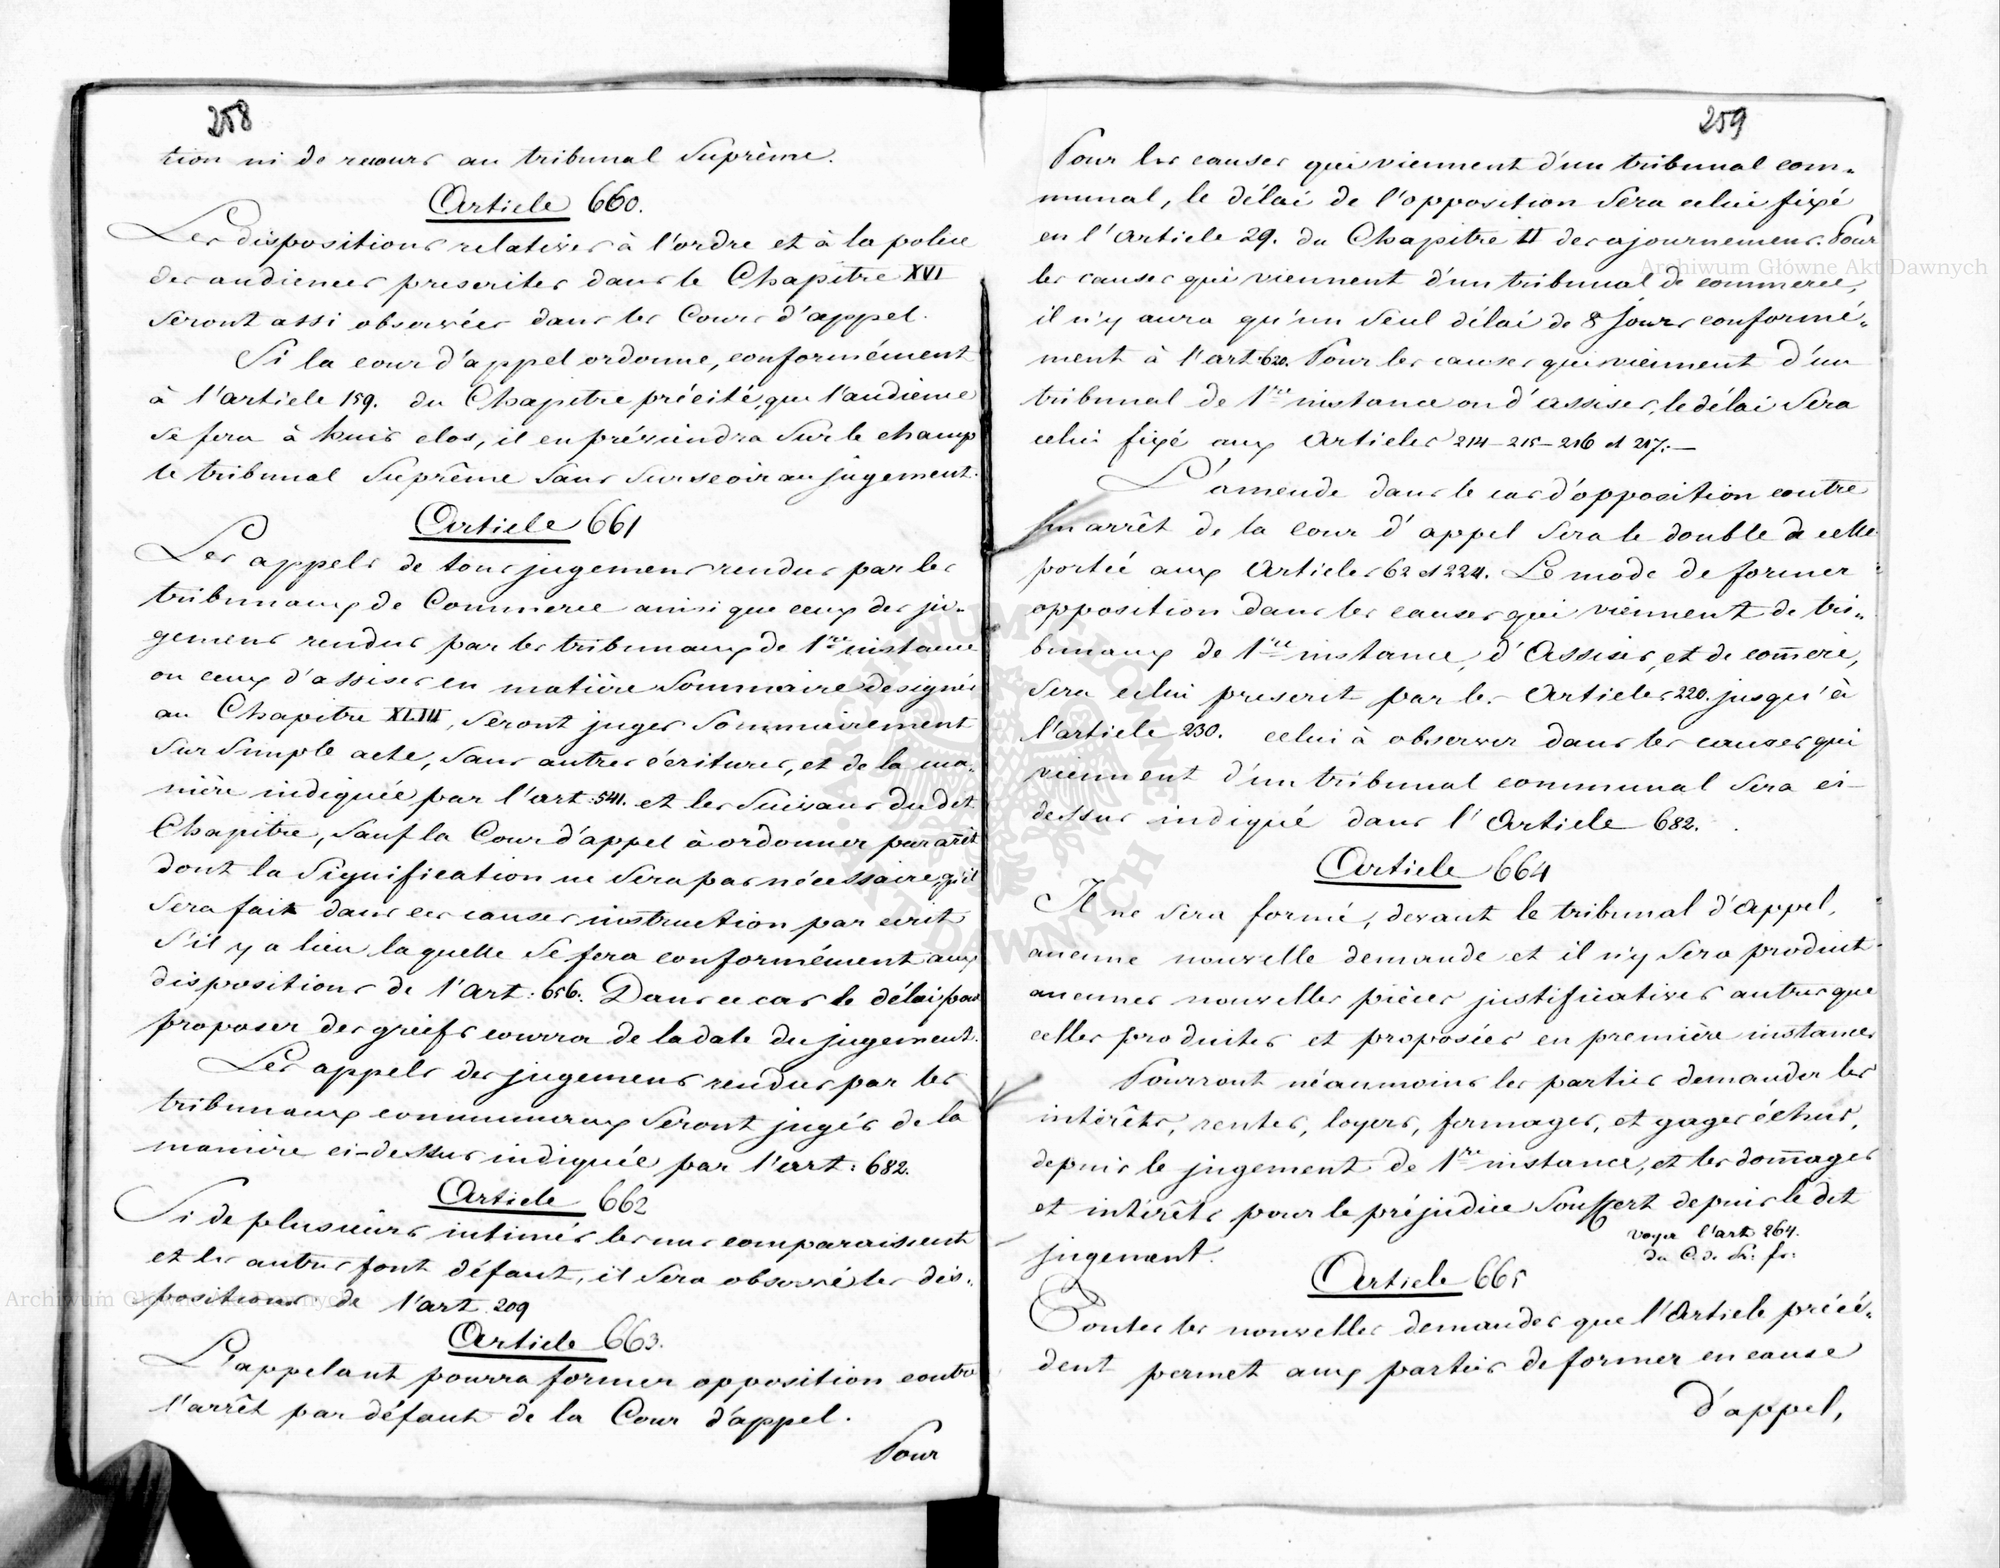 258
tion ni de recours au tribunal Suprême.
Article 660.
Les dispositions relatives à l'ordre et à la police
des audiences prescrites dans le Chapitre XVI
seront assi observées dans les Cours d'appel.
Si la cour d'appel ordonne, conformément
à l'article 159. du Chapitre précité, que l'audience
se fera à huis clos, il en préviendra sur le champ
le tribunal Suprême sans surseoir au jugement.
Article 661
Les appels de tous jugemens rendus par les
tribunaux de Commerce ainsi que ceux des ju-
gemens rendus par les tribunaux de 1re instance
ou ceux d'assises en matière Sommaire designés
au Chapitre XLIII, seront juges Sommairement
sur simple acte, sans autres écritures, et de la ma-
nière indiquée par l'art: 541. et les Suivans du dit
Chapitre, Sauf la Cour d'appel à ordonner par arrêt
dont la Signification ne Sera pas nécessaire, qu'il
sera fait dans ces causes instruction par écrit
s'il y a lieu laquelle se fera conformément aux
dispositions de l'Art: 656. Dans ce cas le délai pour
proposer des griefs courra de la date du jugement.
Les appels des jugemens rendus par les
tribunaux communaux seront jugés de la
manière ci-dessus indiquée par l'art: 682.
Article 662
Si de plusieurs intimés les uns comparaissent
et les autres font défaut, il sera observé les dis-
positions de l'art. 209
Article 663.
L'appelant pourra former opposition contre
l'arrêt par défaut de la Cour d'appel.
Pour
259
Pour les causes qui viennent d'un tribunal com-
munal, le délai de l'opposition sera celui fixé
en l'Article 29. du Chapitre II des ajournemens. Pour
les causes qui viennent d'un tribunal de commerce,
il n'y aura qu'un seul délai de 8 jours conformé-
ment à l'art. 620. Pour les causes qui viennent d'un
tribunal de 1re instance ou d'assises, le délai sera
celui fixé aux Articles 214 - 215 - 216 et 217. -
L'amende dans le cas d'opposition contre
un arrêt de la cour d'appel sera le double de celle
portée aux Articles 62 et 224. Le mode de former
opposition dans les causes qui viennent de tri-
bunaux de 1re instance, d'Assises, et de com̄erce,
sera celui prescrit par les Articles 220. jusqu'à
l'article 230. celui à observer dans les causes qui
viennent d'un tribunal communal sera ci-
dessus indiqué dans l'Article 682.
Article 664
Il ne sera formé, devant le tribunal d'Appel,
aucune nouvelle demande et il n'y sera produit
aucunes nouvelles pièces justificatives autres que
celles produites et proposées en première instance
Pourront néanmoins les parties demander les
intérêts, rentes, loyers, fermages, et gages échus,
depuis le jugement de 1re instance, et les dom̄ages
et intérêts pour le préjudice souffert depuis le dit
jugement.
voyez l'art 264.
du C. de Pr: fr:
Article 665
Toutes les nouvelles demandes que l'Article précé-
dent permet aux parties de former en cause
d'appel,
Archiwum Główne Akt Dawnych
Archiwum Główne Akt Dawnych
ARCHIWUM GŁÓWNE AKT DAWNYCH